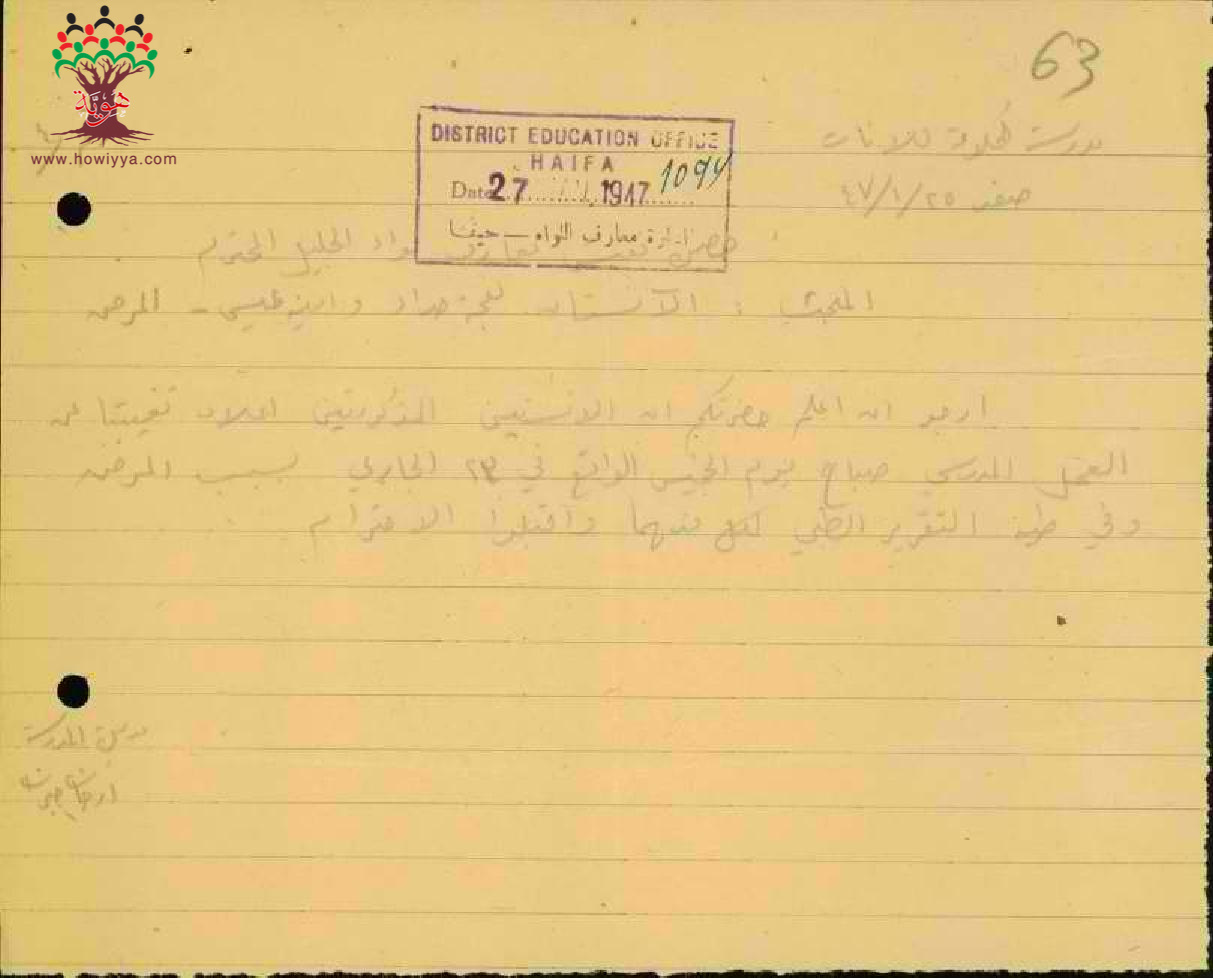 63
هوية
www.howiyya.com
DISTRICT EDUCATION OFFICE
HAIFA
1094
Date 27 1947
ادارة معارف اللواء - حيفا
مدرسة للاناث
صفد ٤٧/١/٢٥
حضرة معارف لواء الجليل المحترم
المبحث : الآنستان حداد و - المرض
ارجو ان اعلم حضرتكم ان الانستين المذكورتين اعلاه تغيبتا عن
العمل المدرسي صباح يوم الخميس الواقع في ٢٣ الجاري بسبب المرض
وفي طيه التقرير الطبي لكل منهما واقبلوا الاحترام
مديرة المدرسة